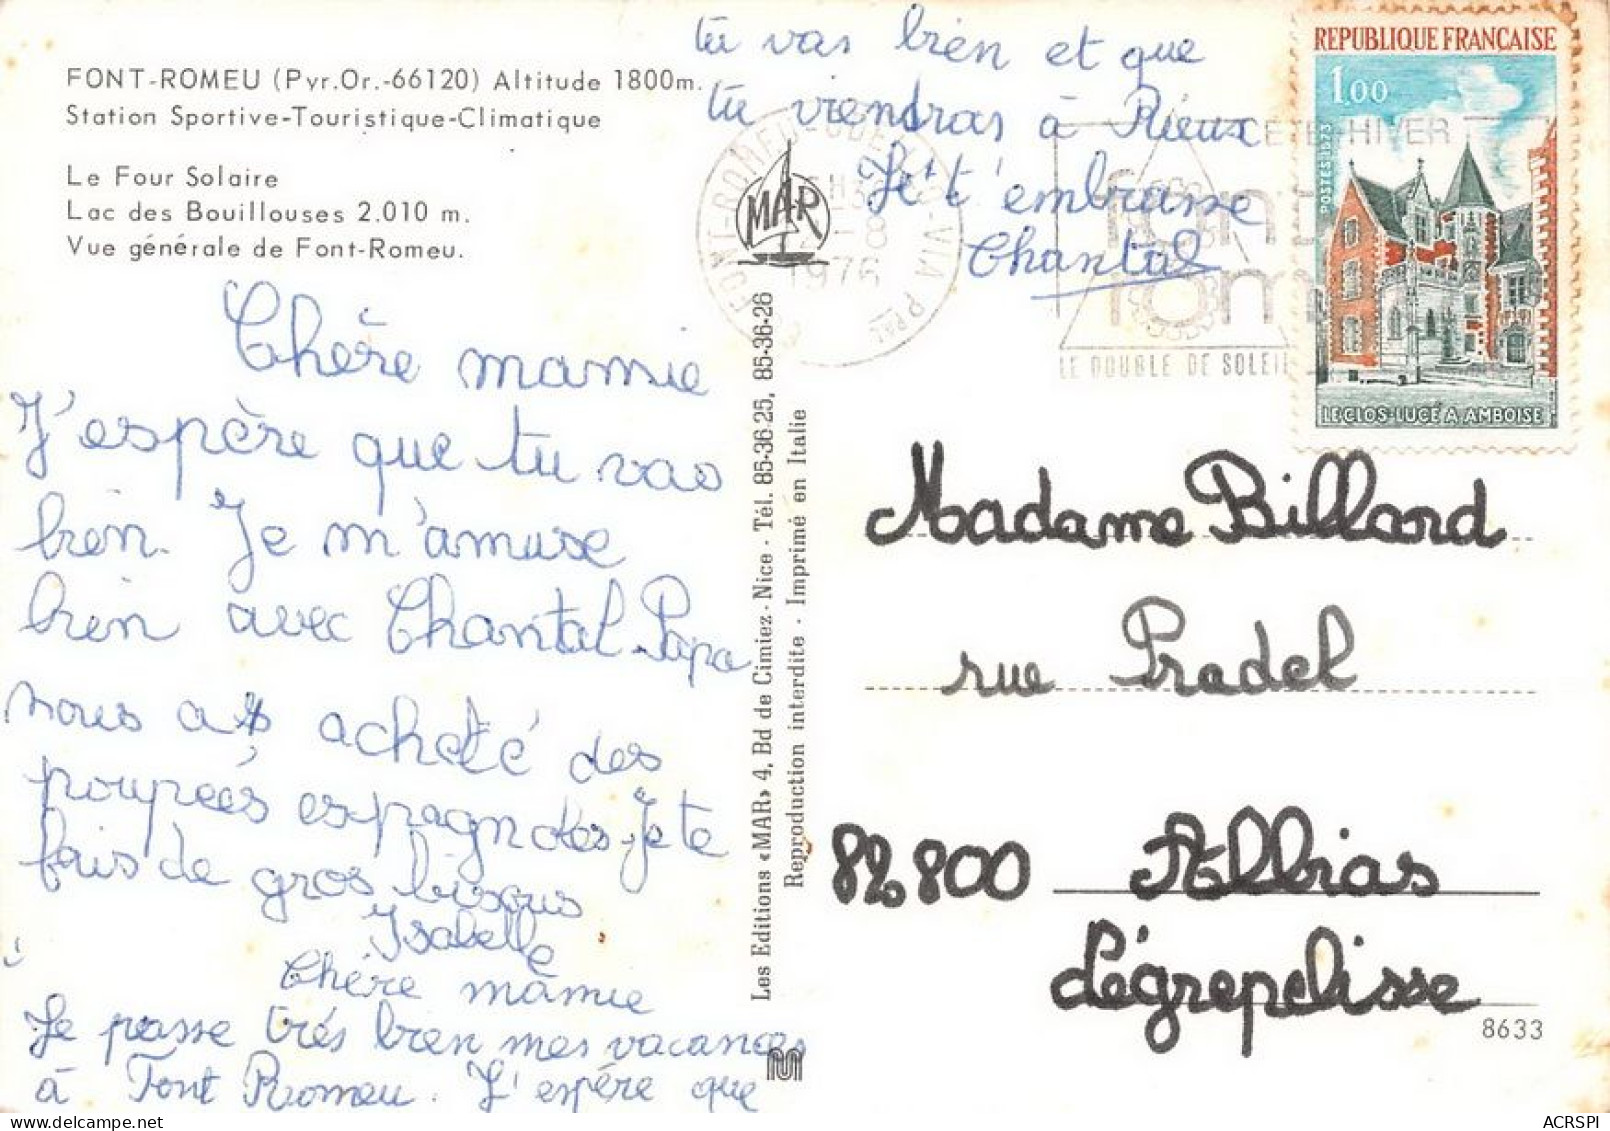 FONT-ROMEU (Pyr.Or.-66120) Altitude 1800m.
Station Sportive-Touristique-Climatique
Le Four Solaire
Lac des Bouillouses 2.010 m.
Vue générale de Font-Romeu.
Chère mamie
J'espère que tu vas
bien. Je m'amuse
bien avec Chantal. Papa
nous a acheté des
poupées espagnoles. Je te
fais de gros bisous
Isabelle
Chère mamie
Je passe très bien mes vacances
à Font Romeu. J'espère que
tu vas bien et que
tu viendras à Rieux
Je t'embrasse
Chantal
MAR
1976
ETE-HIVER
font
rom
LE DOUBLE DE SOLEIL
REPUBLIQUE FRANÇAISE
1,00
POSTES 1973
LE CLOS-LUCÉ A AMBOISE
Les Editions «MAR» 4, Bd de Cimiez - Nice - Tél. 85-36-25, 85-36-26
Reproduction interdite - Imprimé en Italie
Madame Billard
rue Pradel
82.800 Albias
Légrepelisse
8633
ACRSPI